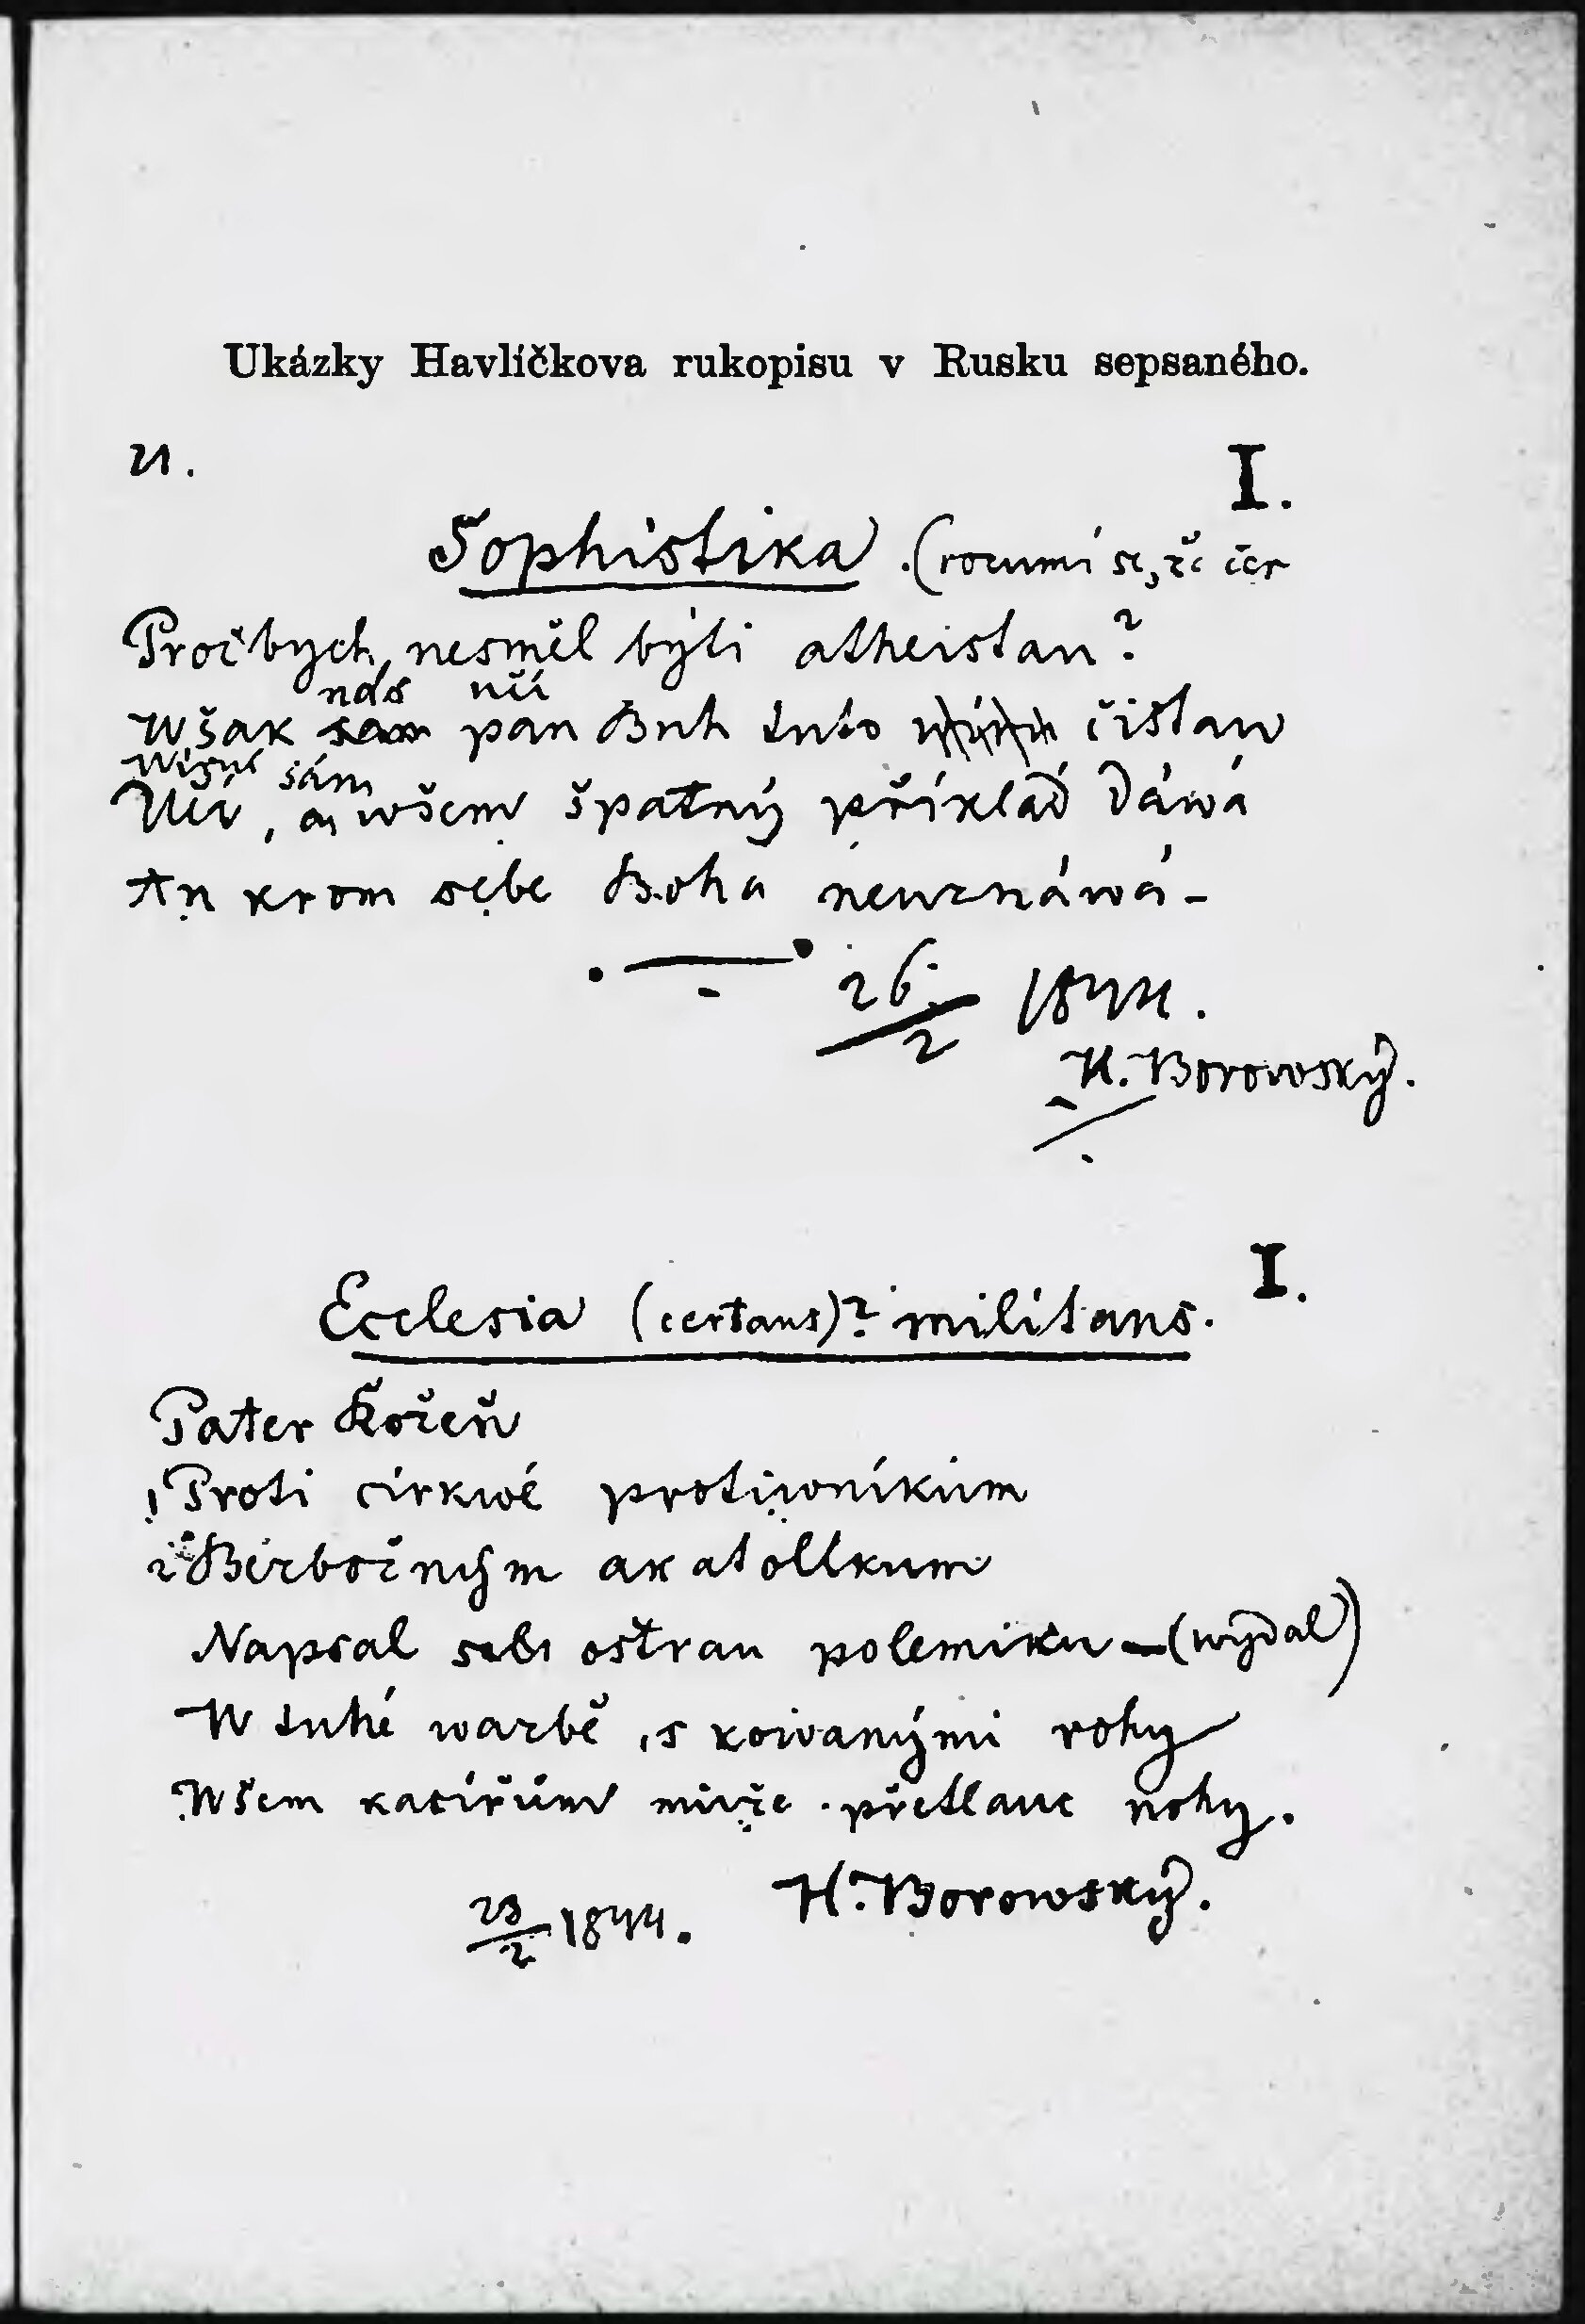 Ukázky Havlíčkova rukopisu v Rusku sepsaného.
I.
Sophistika. (rozumí se, že
Pročbych nesměl býti atheistau?
nás učí
Wšak sam pan Buh tuto čistau
Wísru sám
Učí, owšem špatný příklad dáwá
An krom sebe Boha neuznáwá -
26/2 1844.
H. Borowský.
I.
Ecclesia (certans)? militans.
Pater Kořeň
1 Proti církwé protiwníkům
2 Bezbožným akatolíkum
Napsal sobi ostrau polemiku - (wydal)
W tuhé wazbě, s kowanými rohy
Wšem kacířům může přetlauc nohy.
23/2 1844. H. Borowský.